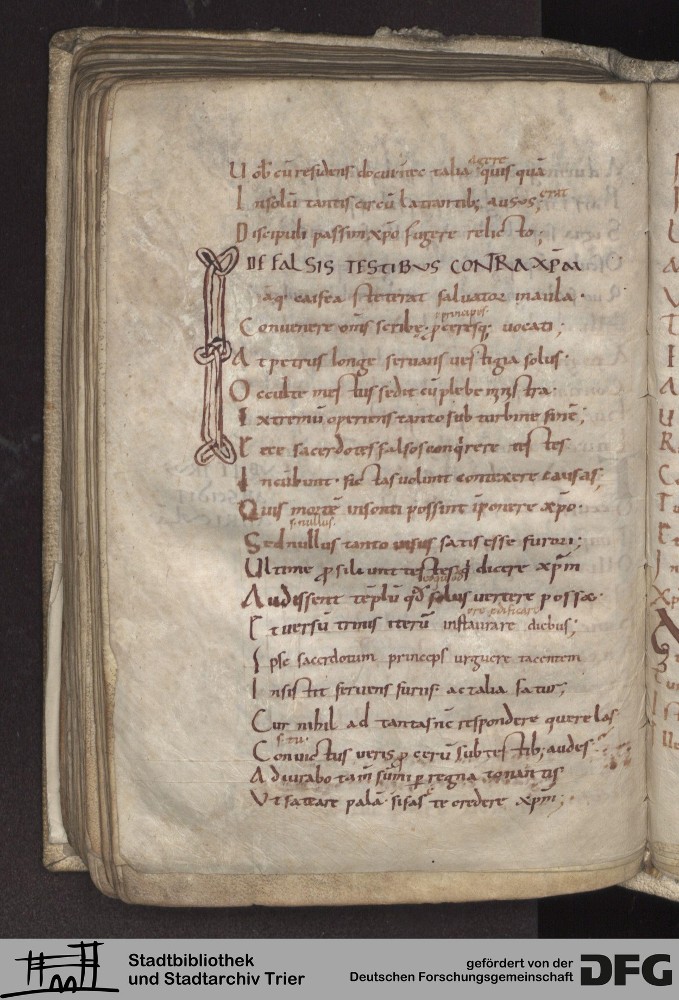 Vob cū residens docui nec talia quis quā
agere
Insolū tantis circū latrantibȝ ausos;
erat
Discipuli passim xp̄o fugere relicto;
DE FALSIS TESTIBVS CONTRA XP̄M
aq; caifea steterat saluator in aula·
principes·
Conuenere om̄s scribę· p̄ceresq; uocati;
At petrus longe seruans uestigia solus·
Occulte mestus sedit cū plebe ministra·
Extremū operiens tanto sub turbine finē;
Ecce sacerdotes falsos conq̇rere testes
Incūbunt· fictas uolunt contexere causas;
Quis mortē insonti possint īponere xp̄o·
s. nullus.
Sed nullus tanto uisus satis esse furori;
Vltime p̄siliunt testes q̇ dicere xp̄m
Audissent tēplū qd̄ solus uertere posset·
Et uersū trinis iterū instaurare diebus;
Ipse sacerdotum princeps urguere tacentem
Insistit feruens furiis· ac talia fatur;
Cur nihil ad tantas n̄c respondere querelas
Conuictus ueris p̄cerū sub testibȝ audes
Adiurabo tam̄ sum̄i p̄ regna tonantis
Vt fateare palā· si fas te credere xp̄m;
Stadtbibliothek
und Stadtarchiv Trier
gefördert von der
Deutschen Forschungsgemeinschaft
DFG